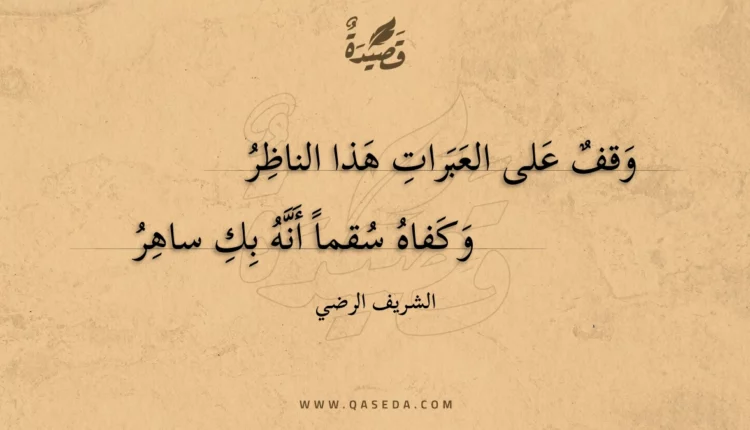 قَصِيْدَةٌ
وَقفٌ عَلى العَبَراتِ هَذا الناظِرُ
وَكَفاهُ سُقماً أَنَّهُ بِكِ ساهِرُ
الشريف الرضي
WWW.QASEDA.COM